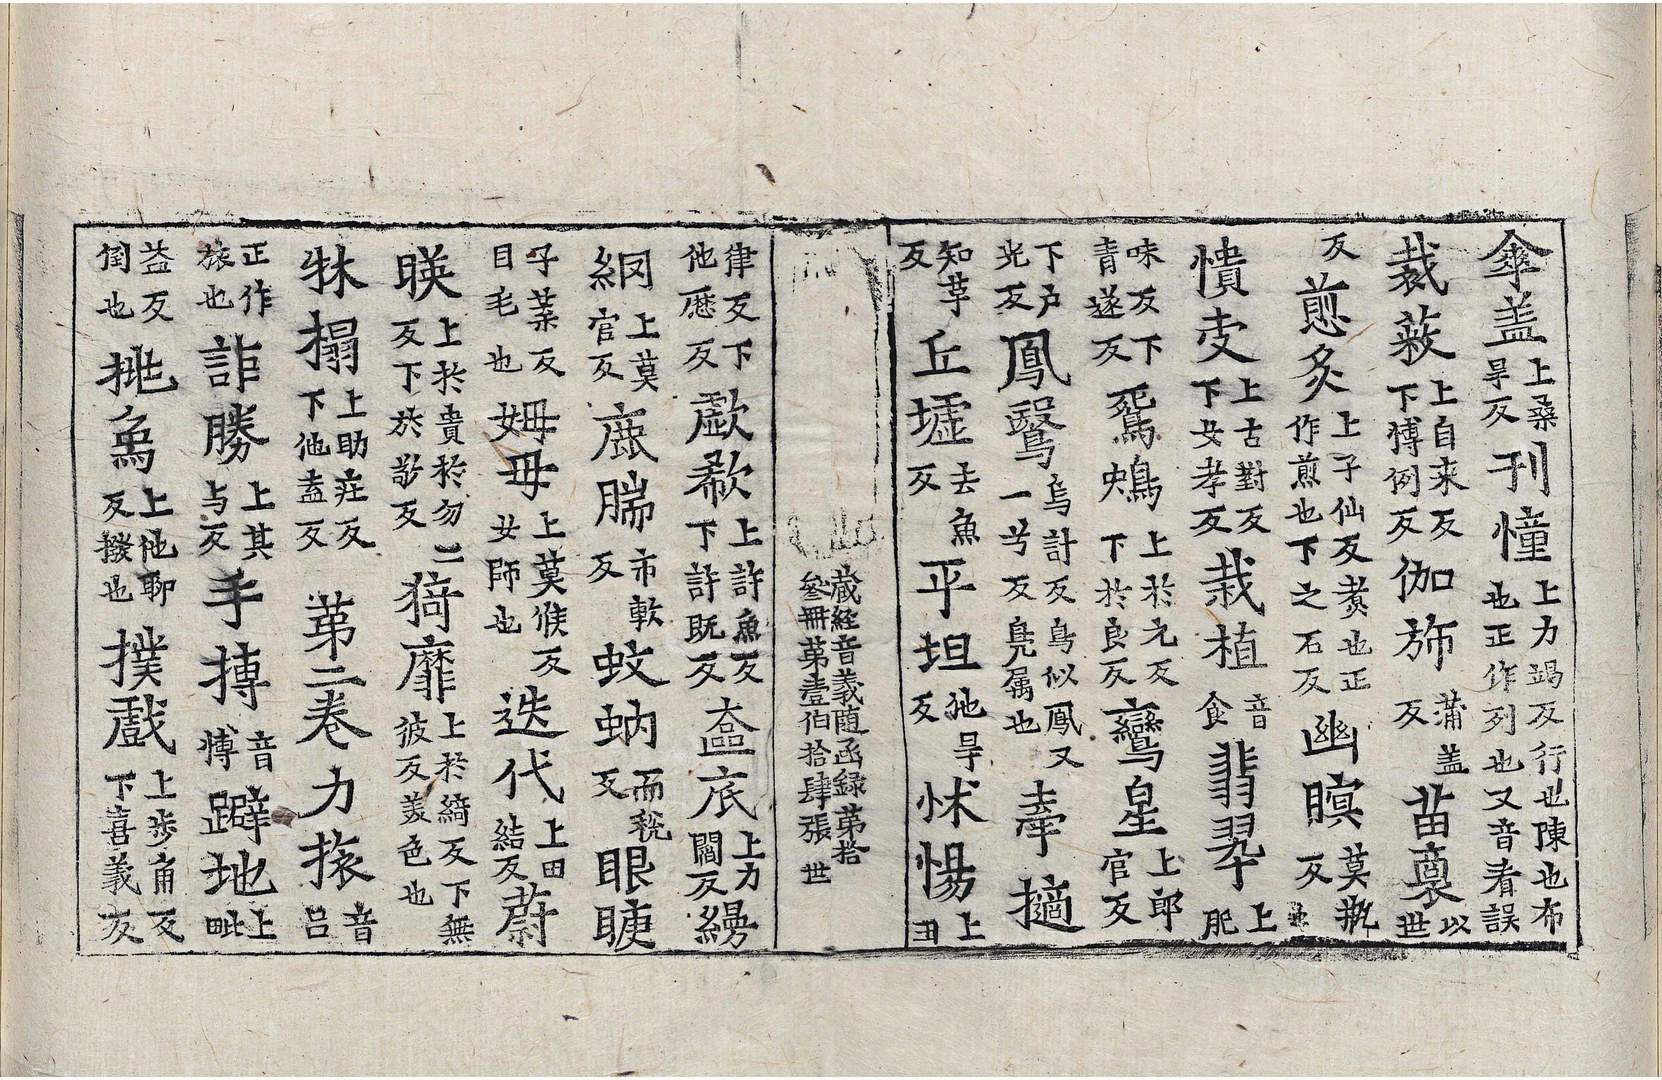 傘盖上桑旱反刊憧上力竭反行也陳也布也正作列也又音看誤
裁蔱上自来反下博例反伽斾蒲盖反苗裒以世
反煎炙上子仙反煑也正作煎也下之石反幽瞑莫瓶反
憒吏上古對反下女孝反栽植音食翡翠上肥
味反下青遂反鴛鴆上於元反下於良反鸞星上郎官反
下户光反鳳鷖烏計反鳥似鳳又一兮反鳧属也牽擿
知革反丘墟去魚反平坦他旱反怵惕上丑
蔵経音義随函録第拾叄冊第壹伯拾肆張 世
律反下他厯反歔欷上許魚反下許既反盇底上力閻反縵
網上莫官反鹿腨市軟反蚊蚋而稅反眼睫
子葉反目毛也姆母上莫候反女師也迭代上田結反蔚
暎上於貴於勿二反下於敬反猗靡上於綺反下無彼反美色也
牀榻上助莊反下他盍反苐二卷力捼音吕
正作旅也詎勝上其与反手搏音博躃地上毗
益反倒也挑烏上他聊反撥也撲戲上步角反下喜義反